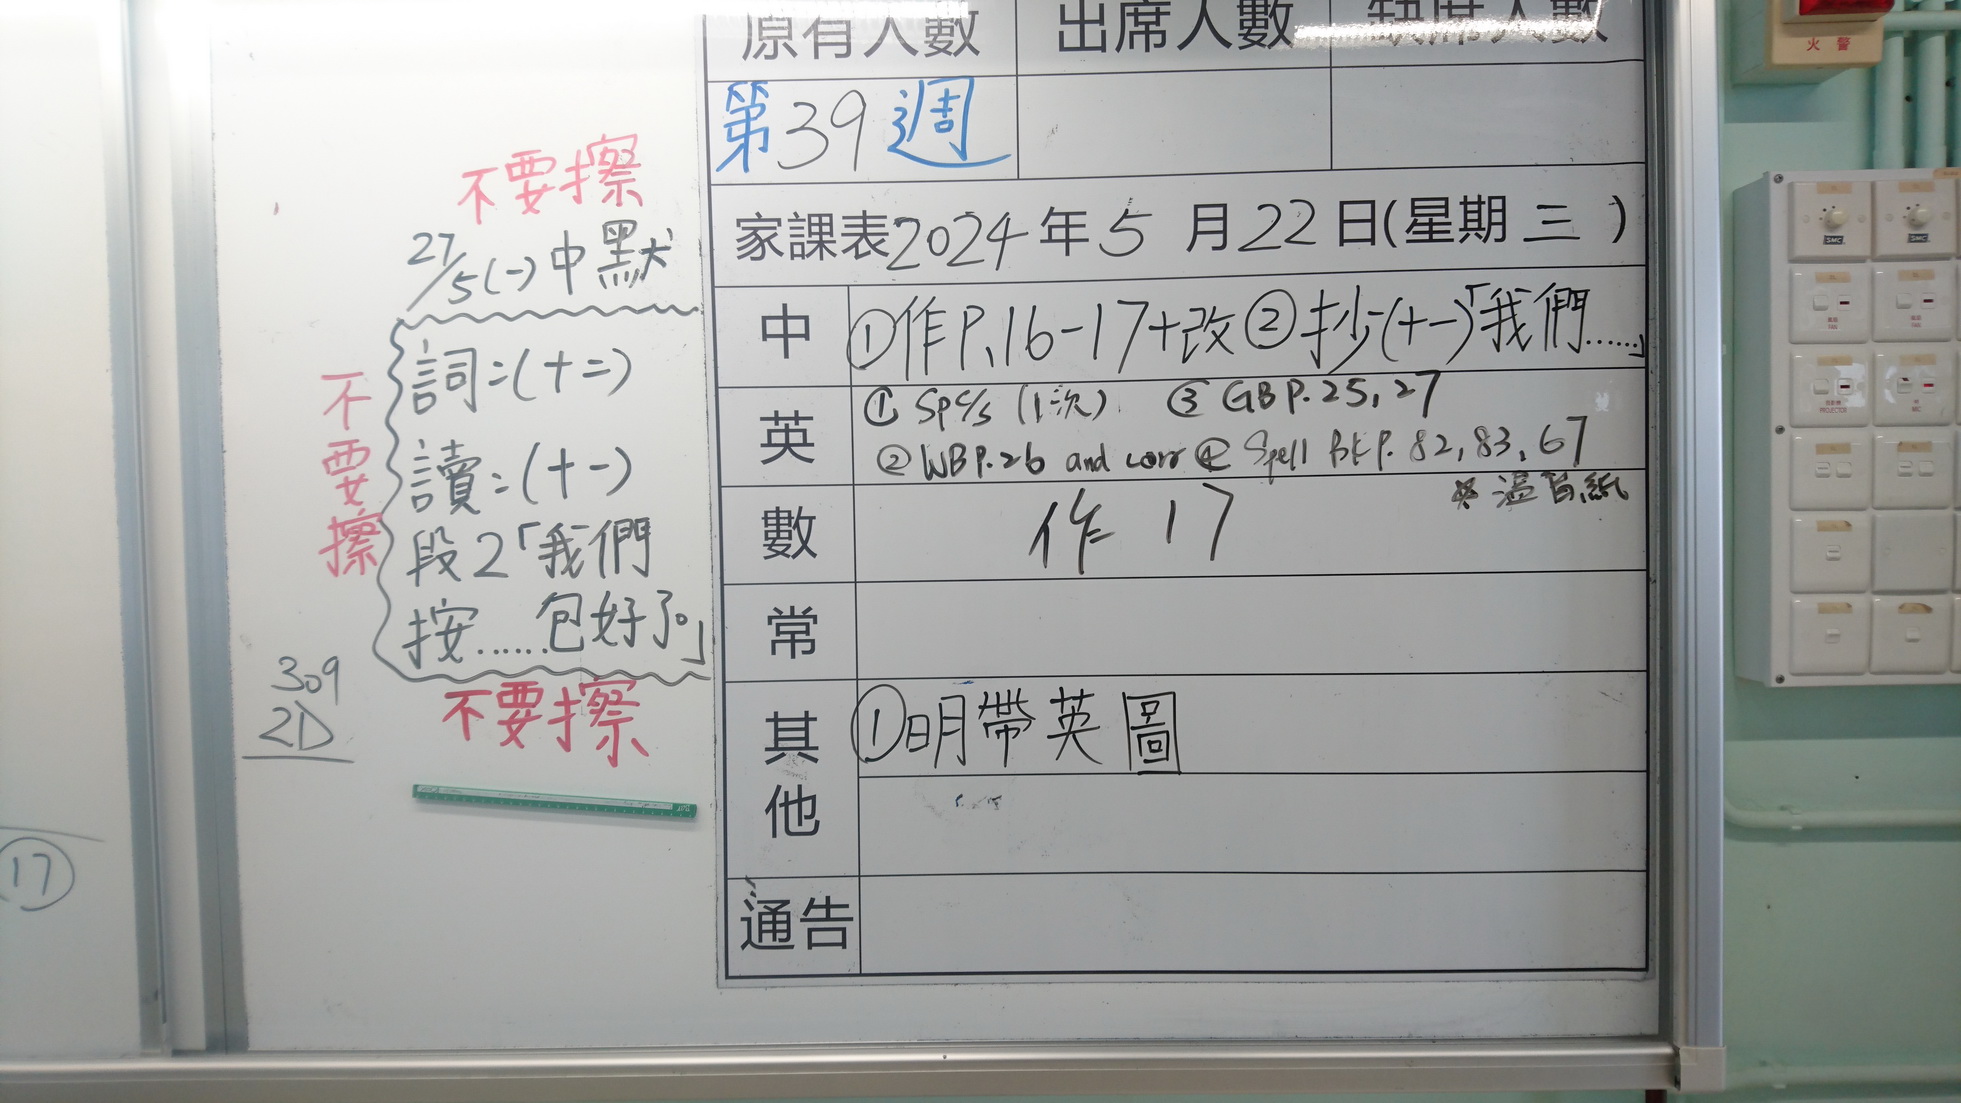 原有人數 出席人數 缺席人數
第39週
家課表2024年5月22日(星期三)
中 ①作P.16-17+改②抄(十一)「我們……」
英 ① Sp c/s (1次) ③ GB P.25, 27
② WB P.26 and corr ④ Spell Bk P. 82, 83, 67
* 溫習紙
數 作 17
常
其他 ①明帶英圖
通告
不要擦
27/5(一)中默
詞:(十二)
讀:(十一)
段2「我們
按……包好了。」
不要擦
不要擦
309
2D
17
火警